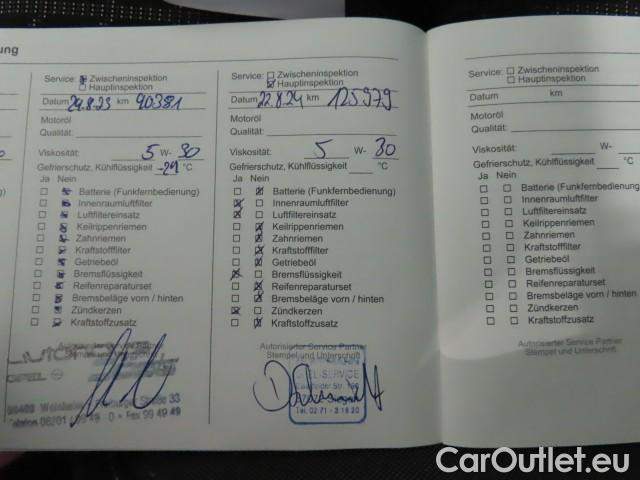 ung
Service: Zwischeninspektion
Hauptinspektion
Datum 29.8.23 km 90381
Motoröl
Qualität:
Viskosität: 5 W- 30
Gefrierschutz, Kühlflüssigkeit °C
Ja Nein
Batterie (Funkfernbedienung)
Innenraumluftfilter
Luftfiltereinsatz
Keilrippenriemen
Zahnriemen
Kraftstofffilter
Getriebeöl
Bremsflüssigkeit
Reifenreparaturset
Bremsbeläge vorn / hinten
Zündkerzen
Kraftstoffzusatz
OPEL
Straße 33
Fax 99 49 49
Service: Zwischeninspektion
Hauptinspektion
Datum 22.8.24 km 125979
Motoröl
Qualität:
Viskosität: 5 W- 30
Gefrierschutz, Kühlflüssigkeit °C
Ja Nein
Batterie (Funkfernbedienung)
Innenraumluftfilter
Luftfiltereinsatz
Keilrippenriemen
Zahnriemen
Kraftstofffilter
Getriebeöl
Bremsflüssigkeit
Reifenreparaturset
Bremsbeläge vorn / hinten
Zündkerzen
Kraftstoffzusatz
Autorisierter Service Partner
Stempel und Unterschrift
SERVICE
Tel. 02 71 - 3 18 20
Service: Zwischeninspektion
Hauptinspektion
Datum km
Motoröl
Qualität:
Viskosität: W-
Gefrierschutz, Kühlflüssigkeit °C
Ja Nein
Batterie (Funkfernbedienung)
Innenraumluftfilter
Luftfiltereinsatz
Keilrippenriemen
Zahnriemen
Kraftstofffilter
Getriebeöl
Bremsflüssigkeit
Reifenreparaturset
Bremsbeläge vorn / hinten
Zündkerzen
Kraftstoffzusatz
Autorisierter Service Partner
Stempel und Unterschrift
CarOutlet.eu